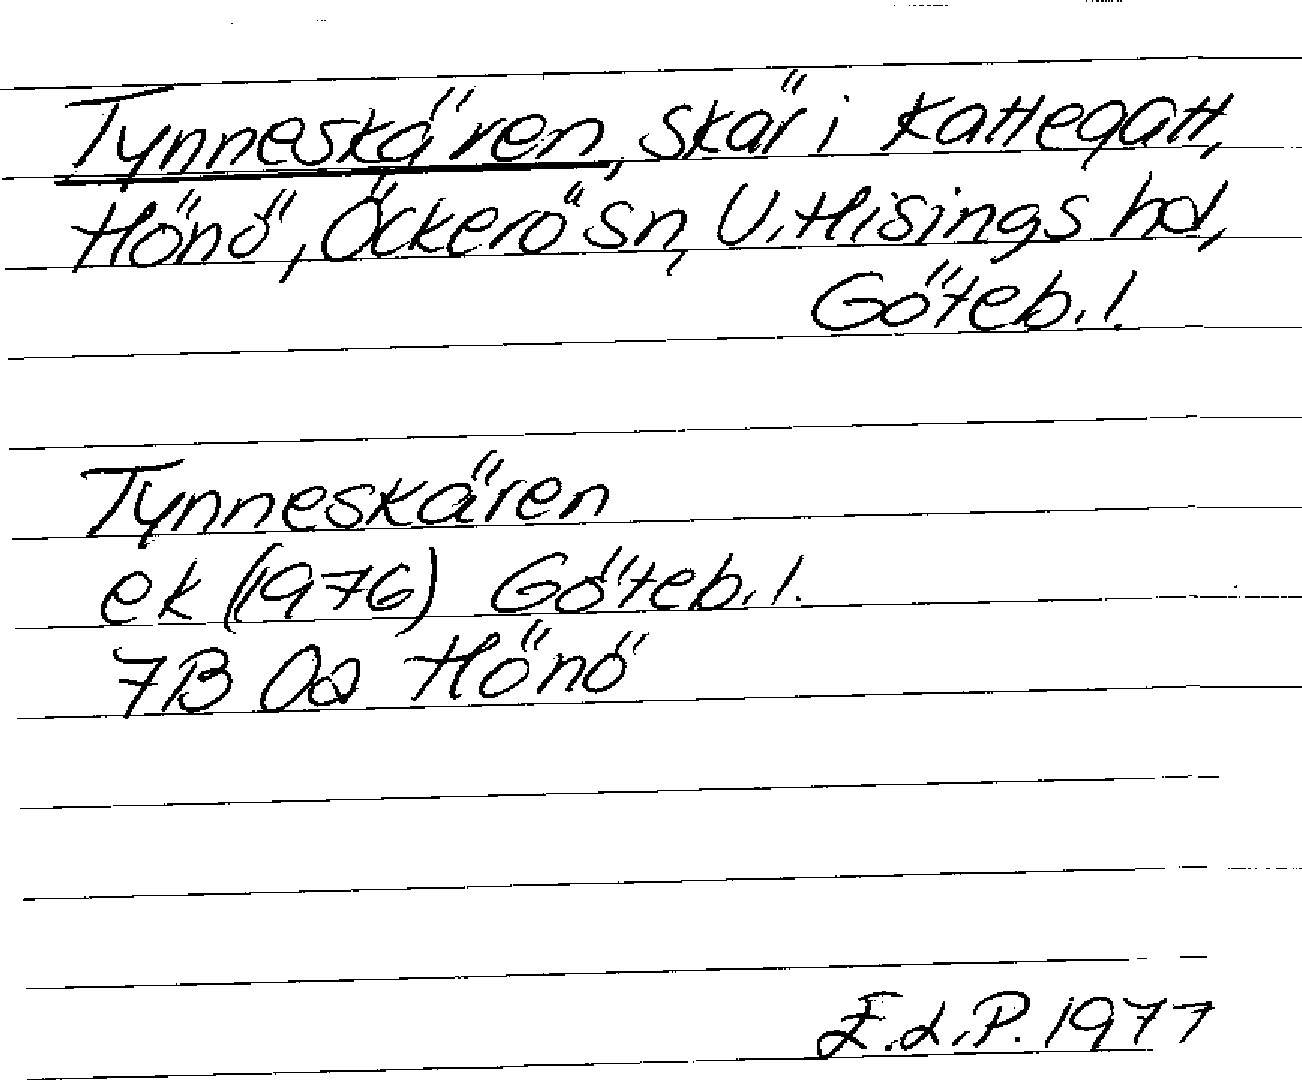 Tynneskären, skär i Kattegatt,
Hönö, Öckerö sn, V. Hisings hd,
Göteb. l.
Tynneskären
ek (1976) Göteb. l.
7B 0a Hönö
E.L.P. 1977